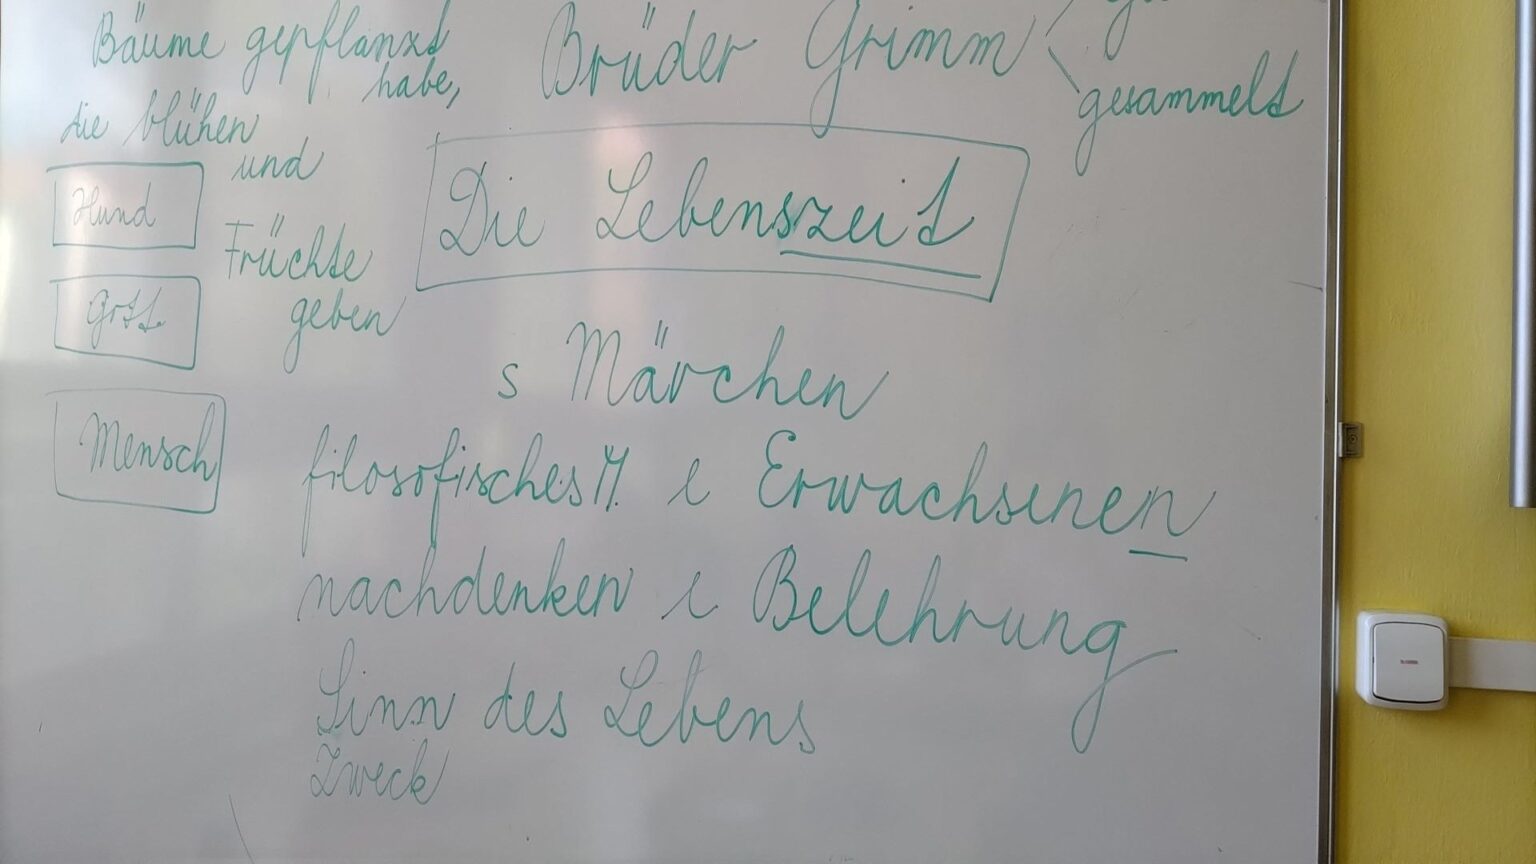 Bäume gepflanzt
habe,
die blühen
und
Früchte
geben
Hund
Gott
Mensch
Brüder Grimm
gesammelt
Die Lebenszeit
s Märchen
filosofisches M. e Erwachsenen
nachdenken e Belehrung
Sinn des Lebens
Zweck